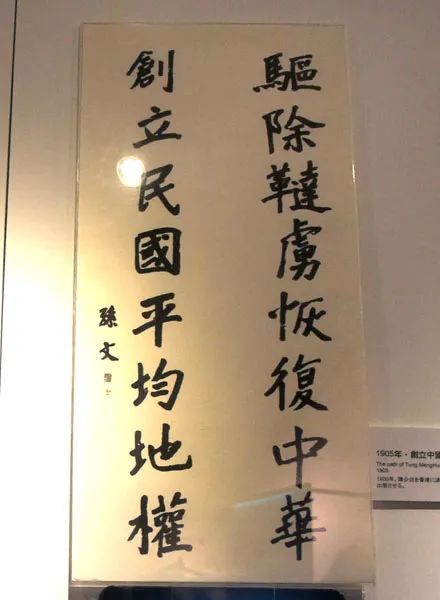 驅除韃虜恢復中華
創立民國平均地權
孫文
1905年・創立中國
The oath of Tung MengHui
1905